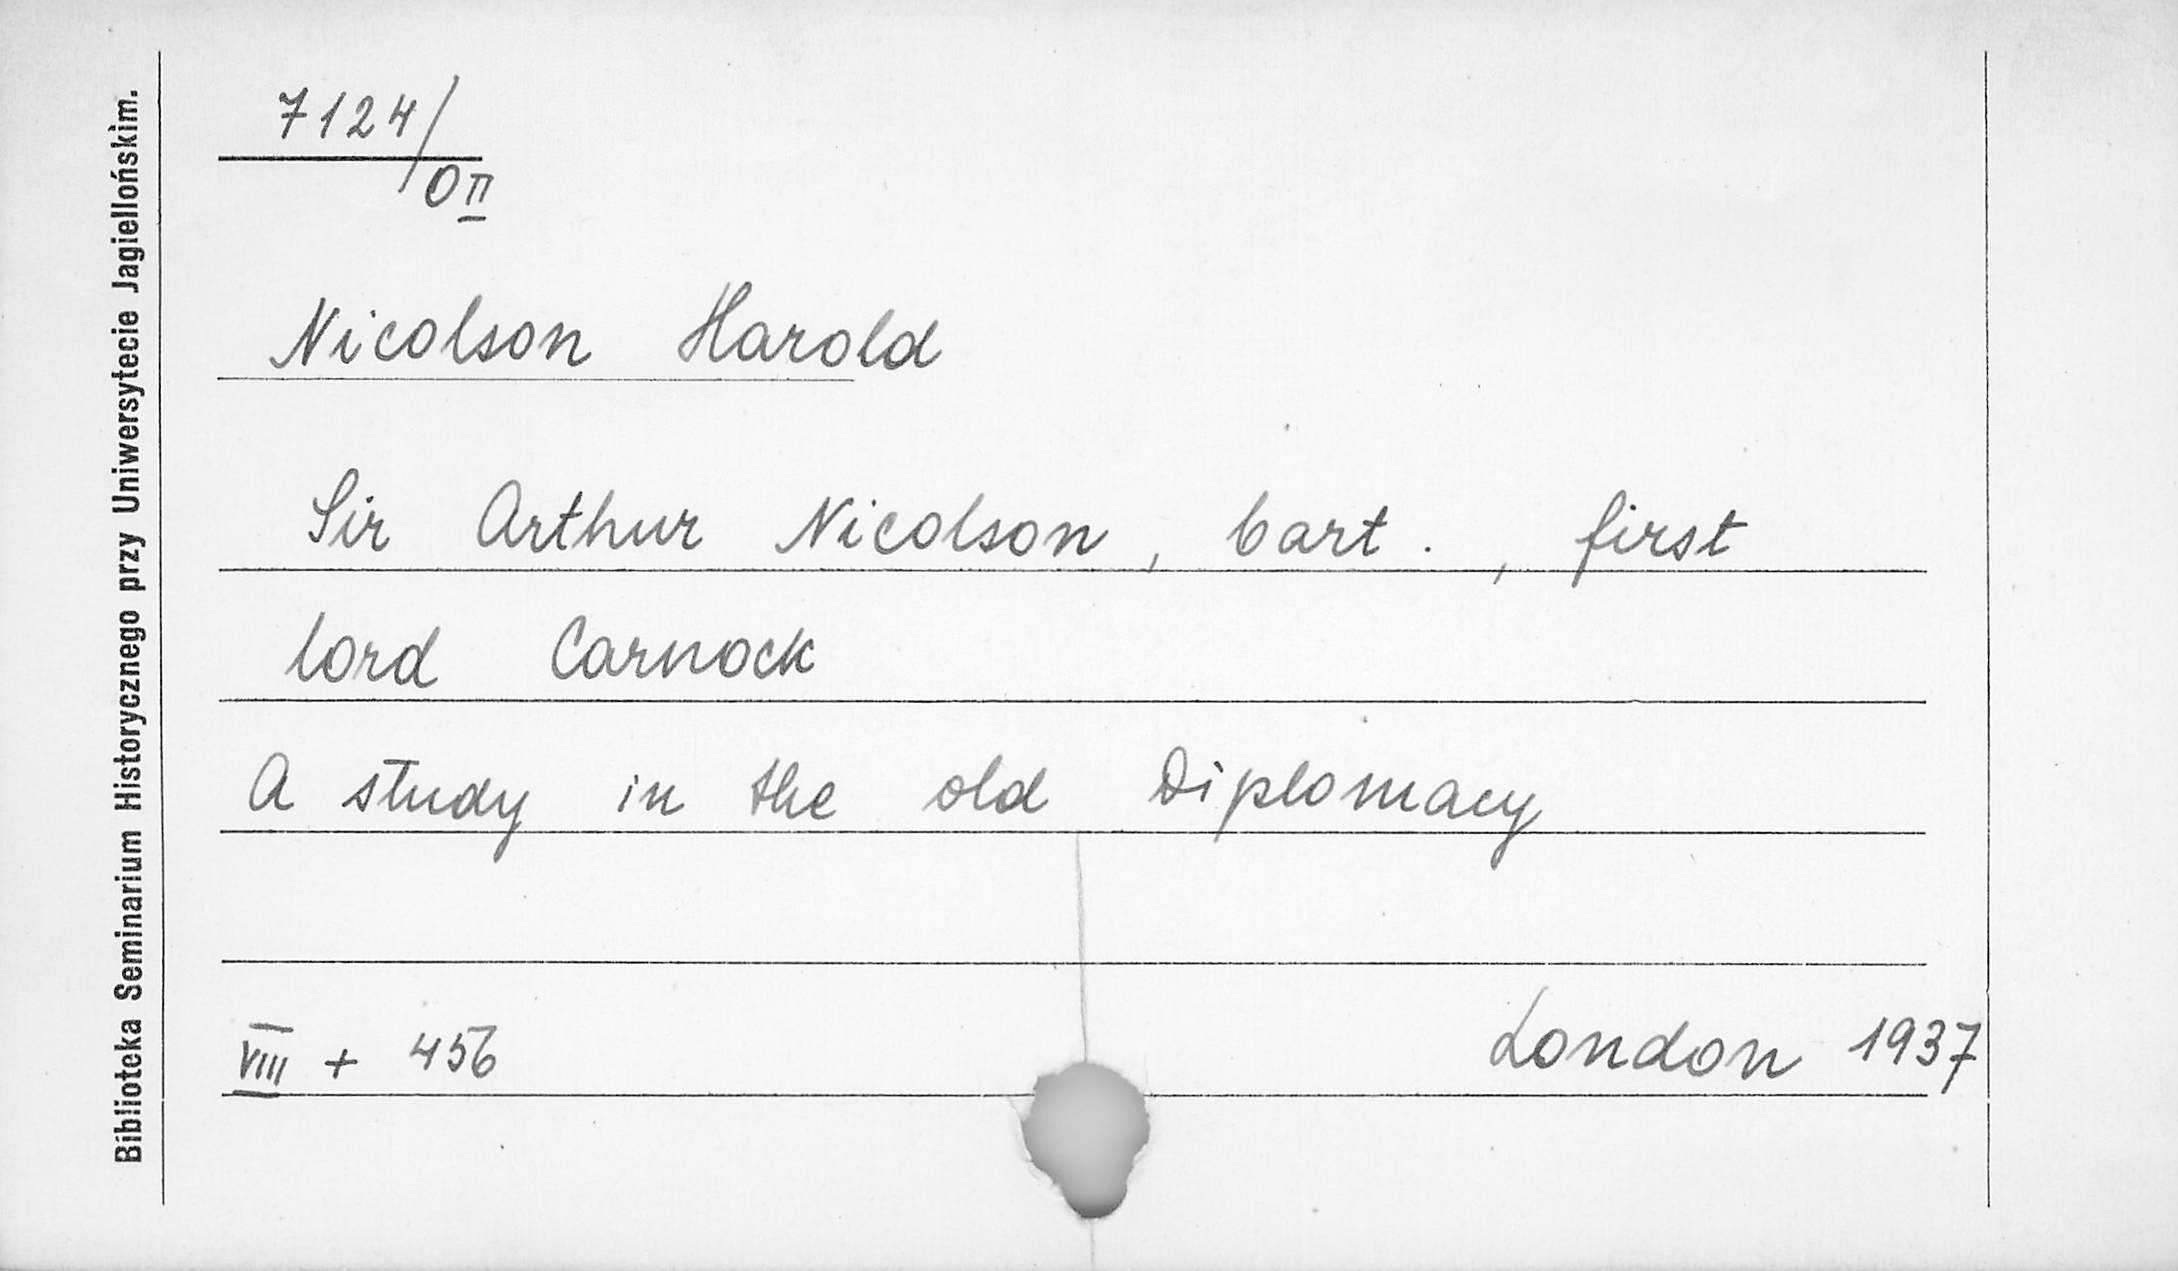 Biblioteka Seminarium Historycznego przy Uniwersytecie Jagiellońskim.
7124/
O II
Nicolson Harold
Sir Arthur Nicolson, bart., first
lord Carnock
A study in the old Diplomacy
VIII + 456
London 1937